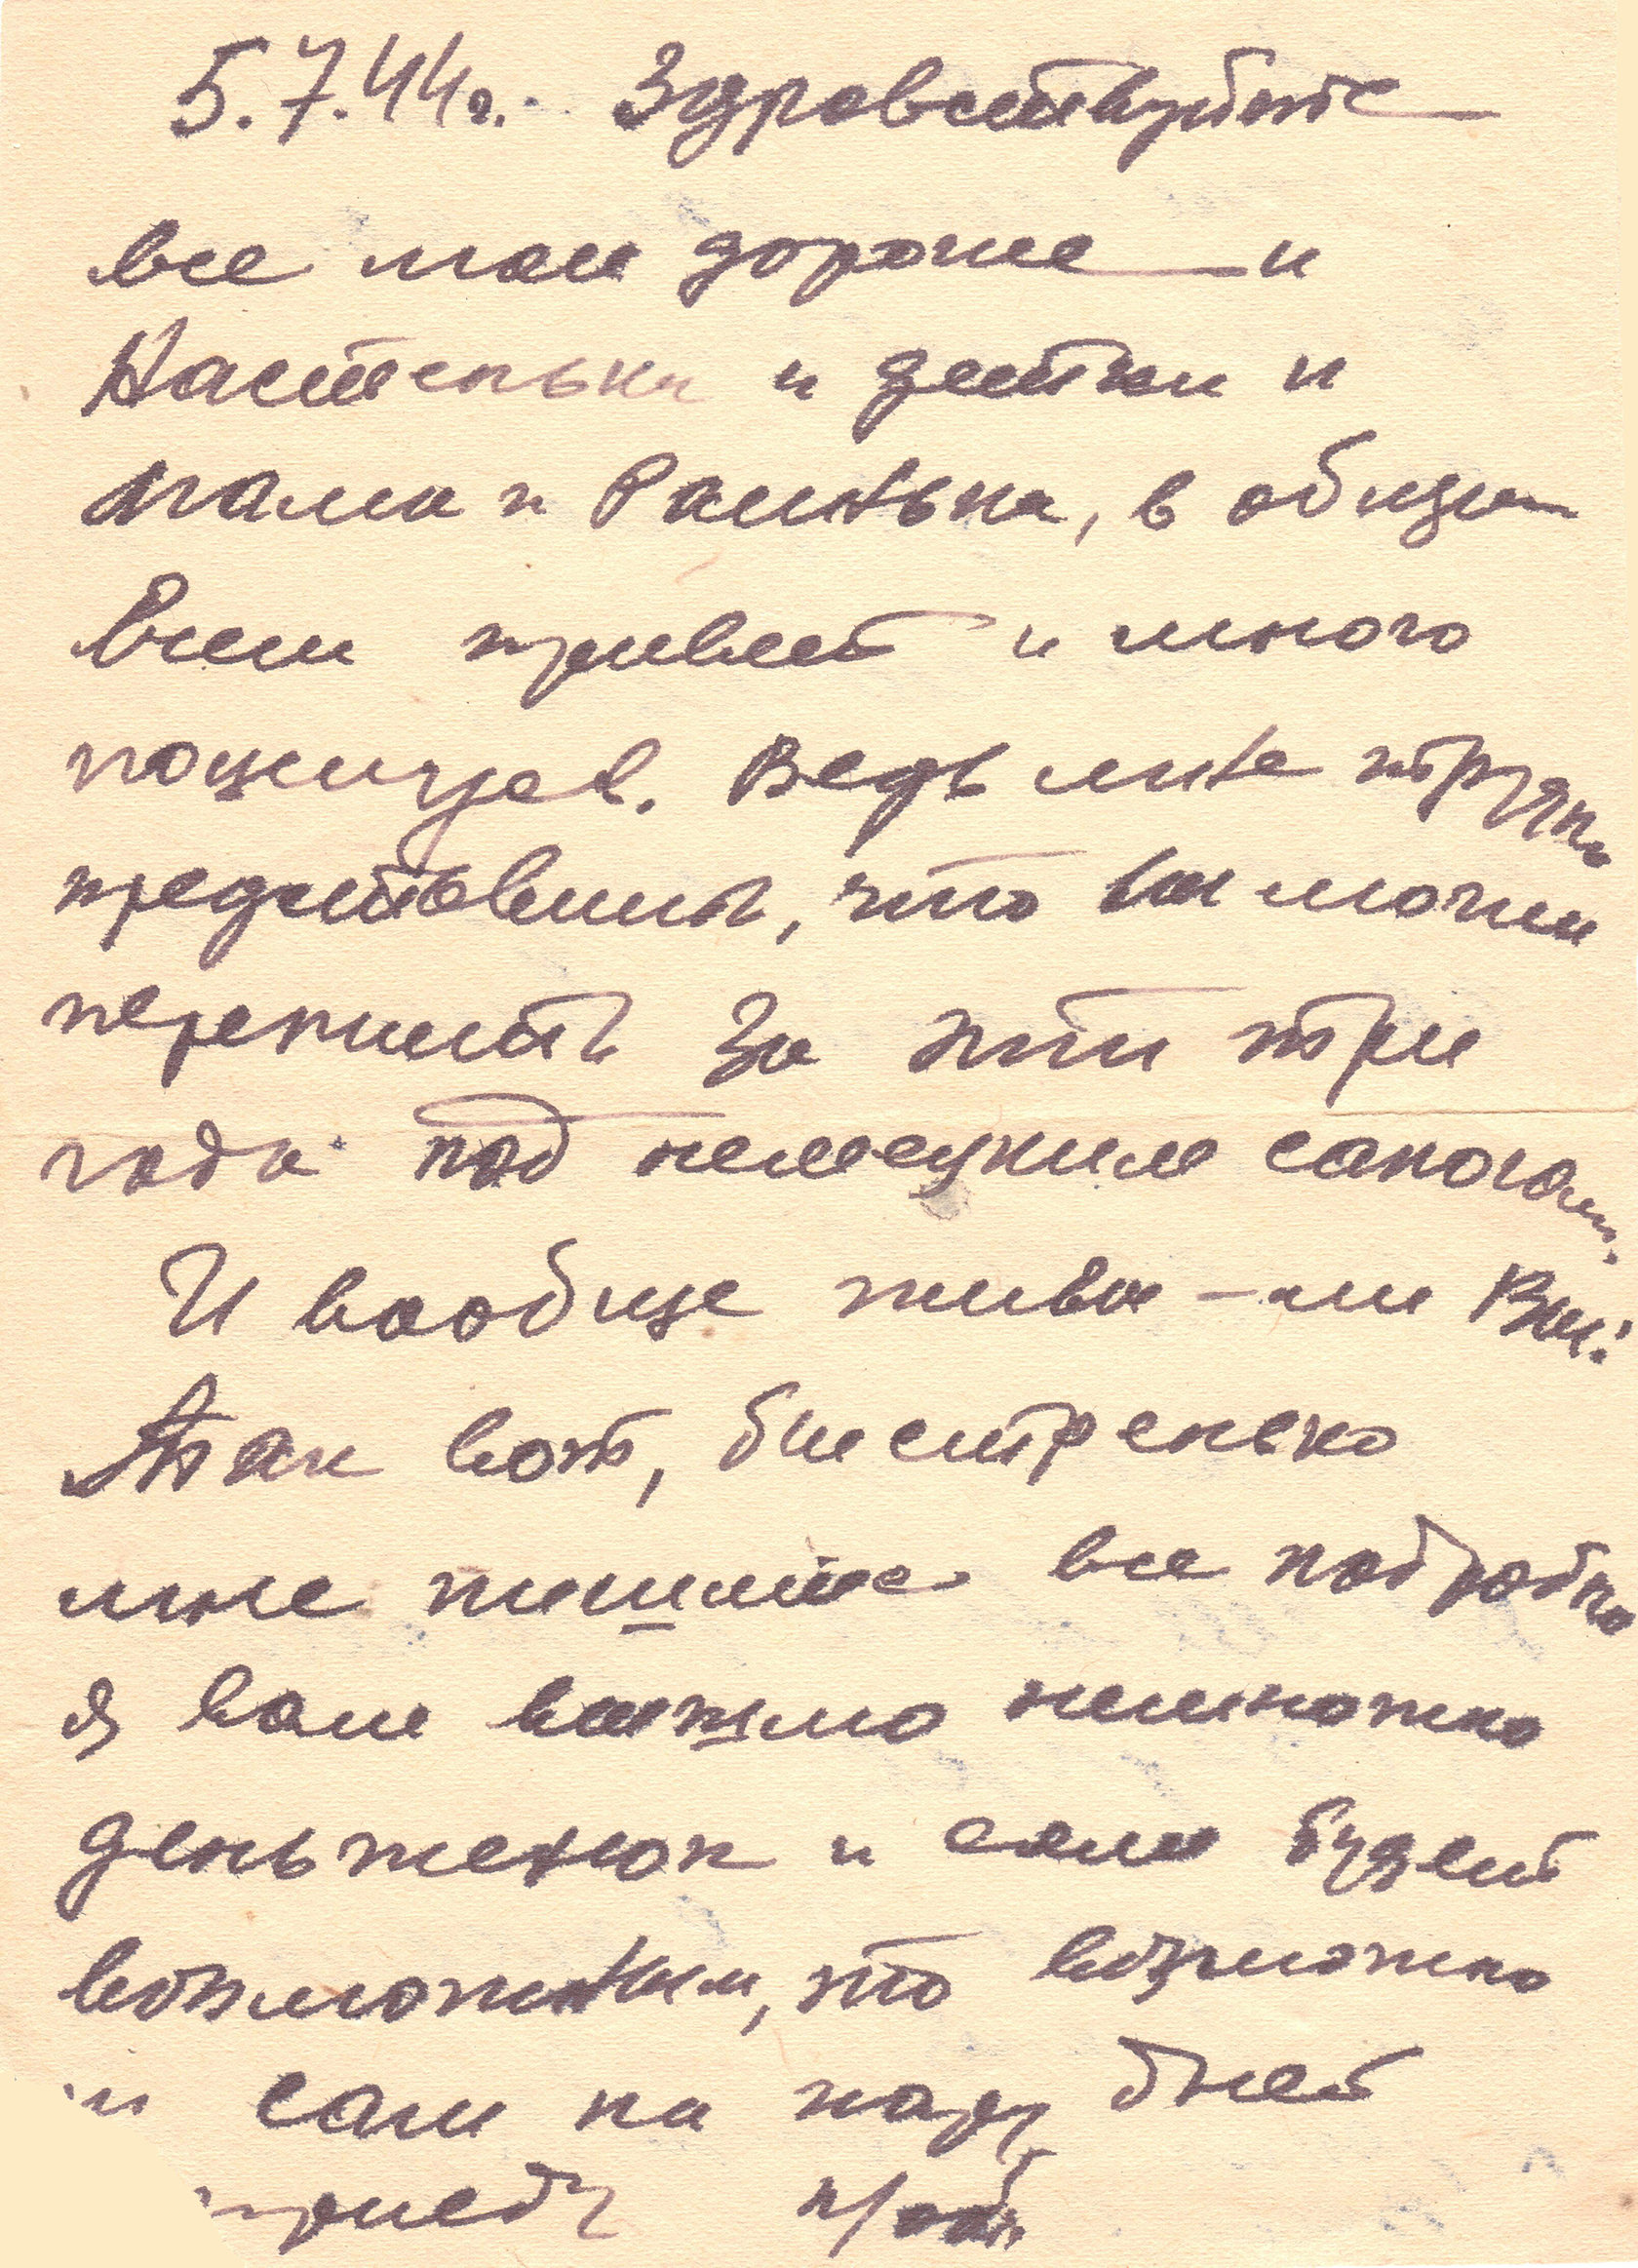 5.7.44г. Здравствуйте
все мои дорогие и
Настенька и детки и
мама и Раинька, в общем
всем привет и много
поцелуев. Ведь мне трудно
представить, что вы могли
пережить за эти три
года под немецким сапогом.
И вообще живы-ли Вы?
Так вот, быстренько
мне пишите все подробно
я вам вышлю немножко
деньженок и если будет
возможным, то возможно
и сам на пару дней
приеду